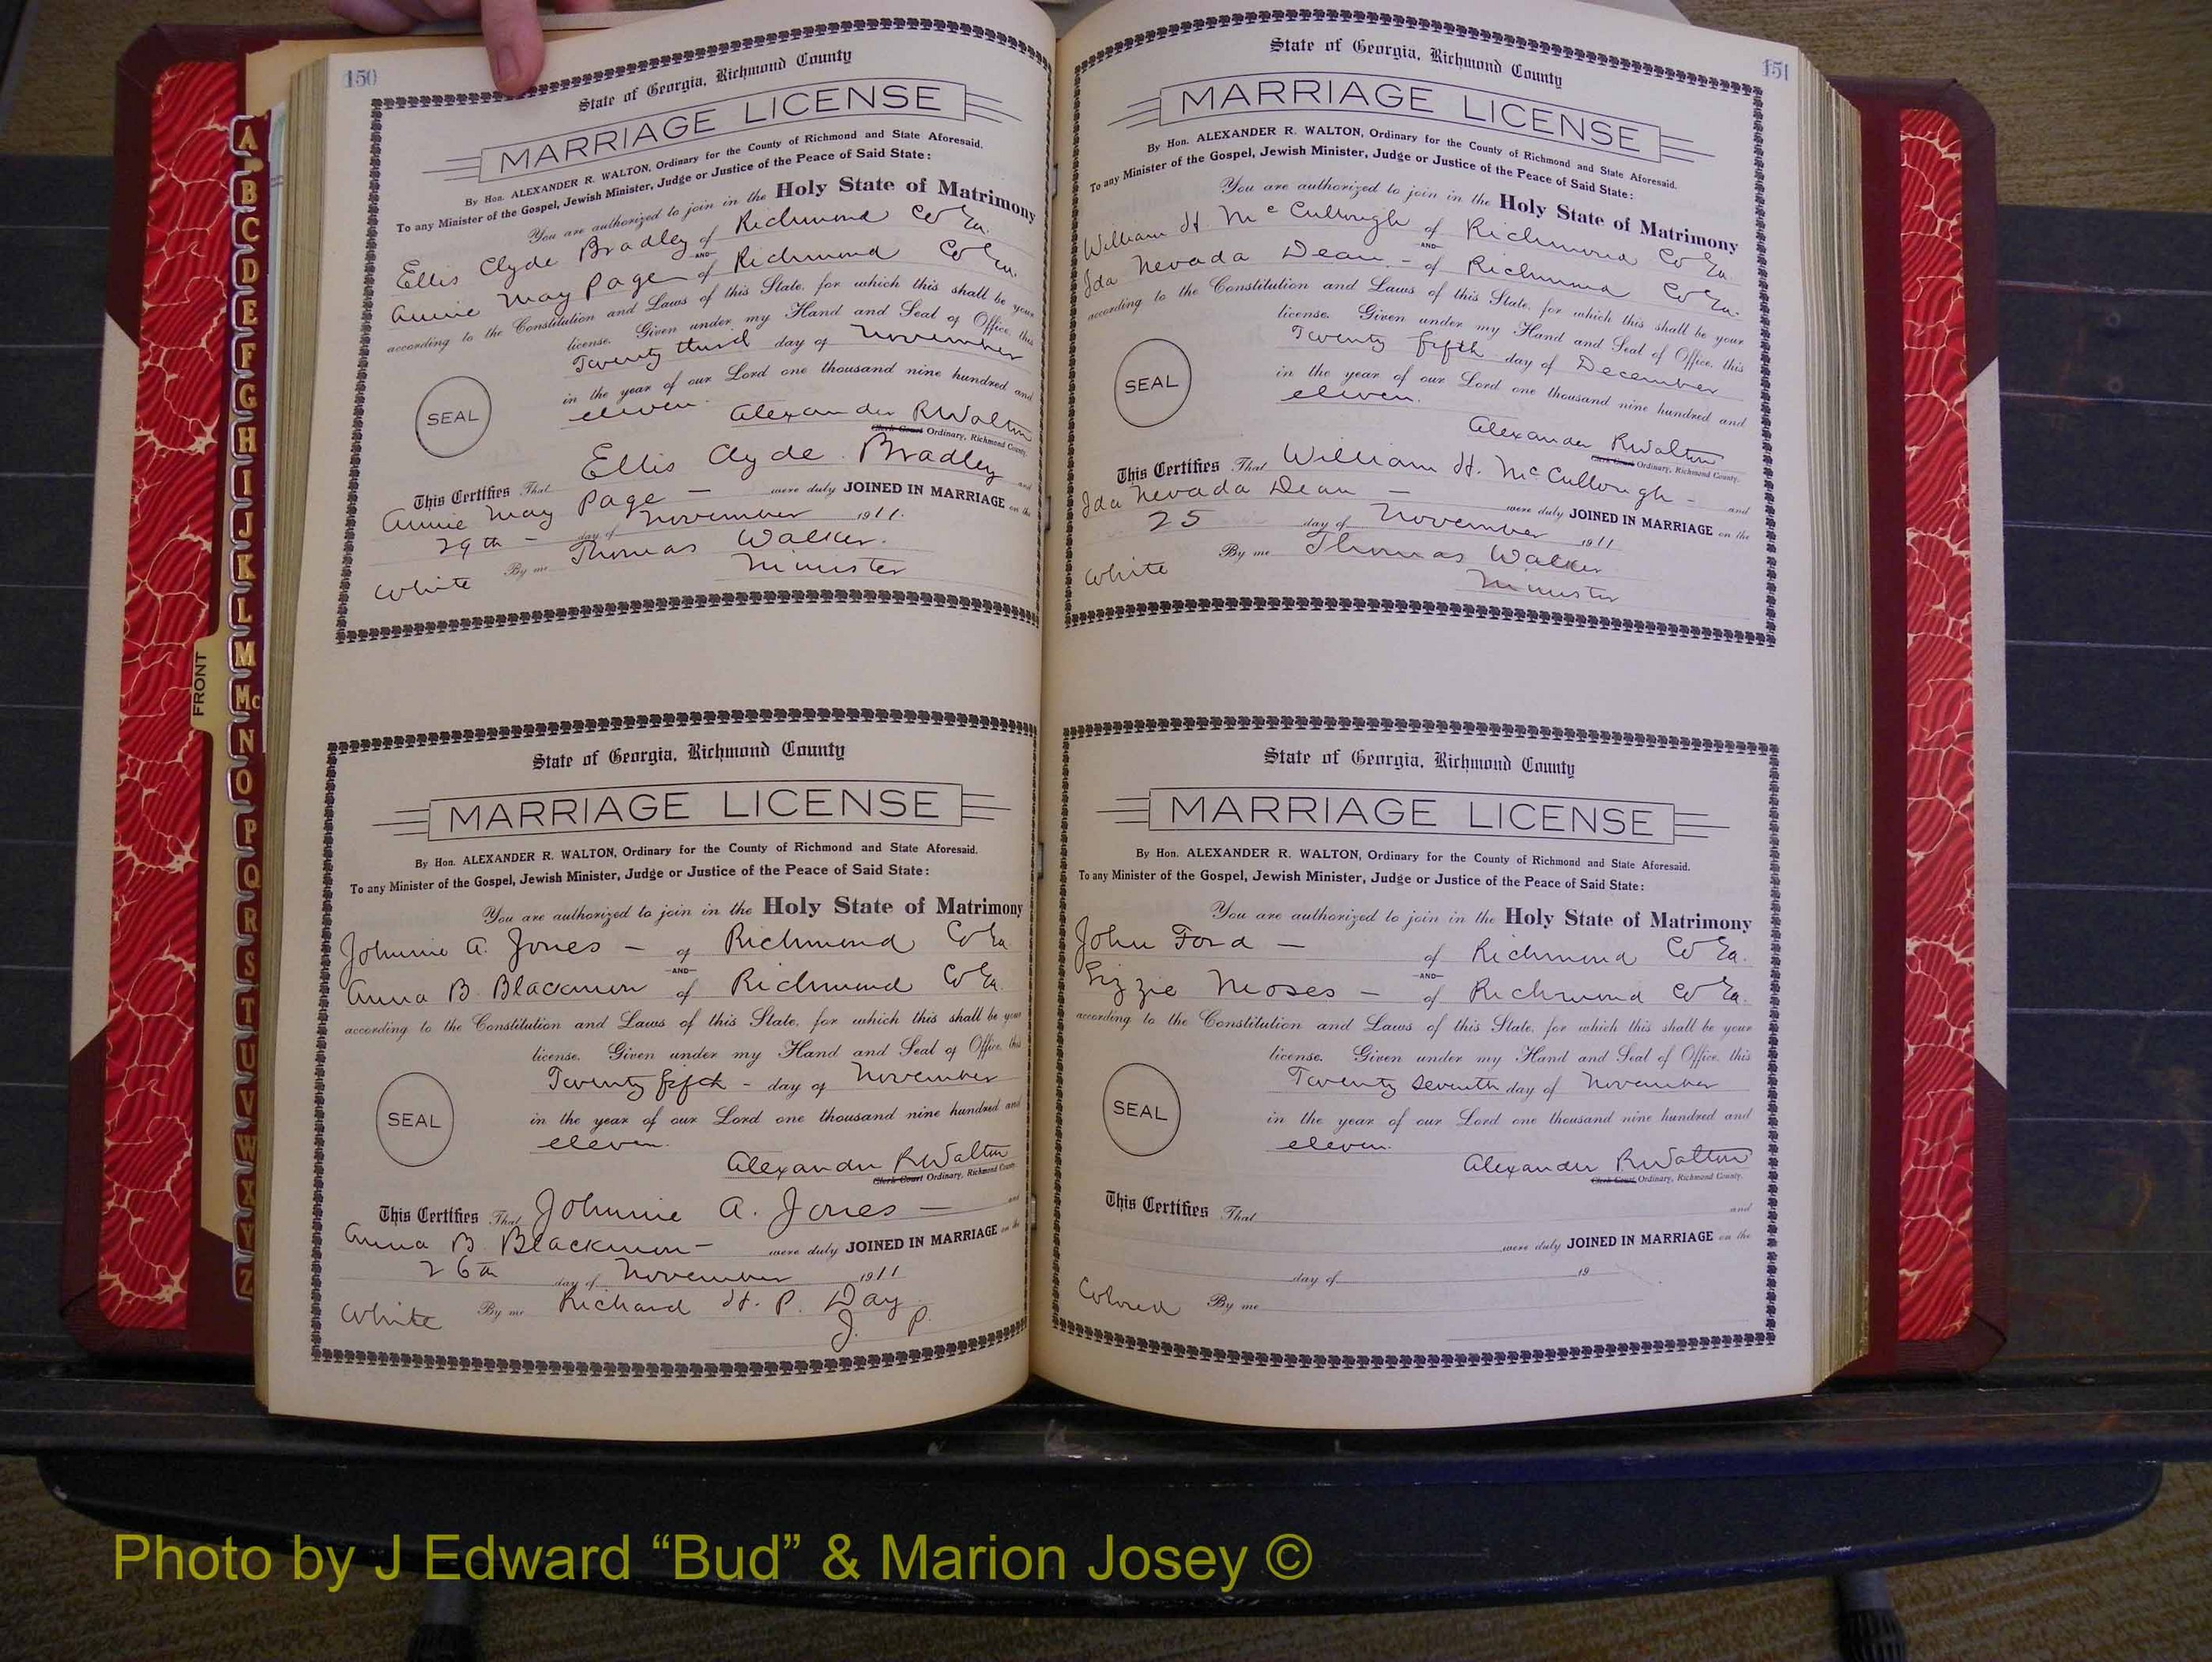 150
State of Georgia, Richmond County
MARRIAGE LICENSE
By Hon. ALEXANDER R. WALTON, Ordinary for the County of Richmond and State Aforesaid.
To any Minister of the Gospel, Jewish Minister, Judge or Justice of the Peace of Said State:
You are authorized to join in the Holy State of Matrimony
Ellis Clyde Bradley of Richmond Co Ga.
AND
Annie May Page of Richmond Co Ga.
according to the Constitution and Laws of this State, for which this shall be your
license. Given under my Hand and Seal of Office, this
Twenty third day of November
in the year of our Lord one thousand nine hundred and
SEAL
eleven.
Alexander R Walton
Clerk Court Ordinary, Richmond County.
This Certifies That Ellis Clyde Bradley and
Annie May Page – were duly JOINED IN MARRIAGE on the
29th – day of November 1911.
White By me Thomas Walker.
Minister
State of Georgia, Richmond County
MARRIAGE LICENSE
By Hon. ALEXANDER R. WALTON, Ordinary for the County of Richmond and State Aforesaid.
To any Minister of the Gospel, Jewish Minister, Judge or Justice of the Peace of Said State:
You are authorized to join in the Holy State of Matrimony
Johnnie A. Jones – of Richmond Co Ga
AND
Anna B. Blackmon of Richmond Co Ga.
according to the Constitution and Laws of this State, for which this shall be your
license. Given under my Hand and Seal of Office, this
Twenty fifth – day of November
in the year of our Lord one thousand nine hundred and
SEAL
eleven.
Alexander R Walton
Clerk Court Ordinary, Richmond County.
This Certifies That Johnnie A. Jones – and
Anna B. Blackmon – were duly JOINED IN MARRIAGE on the
26th day of November 1911
White By me Richard H. P. Day
J. P.
151
State of Georgia, Richmond County
MARRIAGE LICENSE
By Hon. ALEXANDER R. WALTON, Ordinary for the County of Richmond and State Aforesaid.
To any Minister of the Gospel, Jewish Minister, Judge or Justice of the Peace of Said State:
You are authorized to join in the Holy State of Matrimony
William H. McCullough of Richmond Co Ga.
AND
Ida Nevada Dean – of Richmond Co Ga.
according to the Constitution and Laws of this State, for which this shall be your
license. Given under my Hand and Seal of Office, this
Twenty fifth day of December
in the year of our Lord one thousand nine hundred and
SEAL
eleven.
Alexander R Walton
Clerk Court Ordinary, Richmond County.
This Certifies That William H. McCullough – and
Ida Nevada Dean – were duly JOINED IN MARRIAGE on the
25 day of November 1911
White By me Thomas Walker
Minister
State of Georgia, Richmond County
MARRIAGE LICENSE
By Hon. ALEXANDER R. WALTON, Ordinary for the County of Richmond and State Aforesaid.
To any Minister of the Gospel, Jewish Minister, Judge or Justice of the Peace of Said State:
You are authorized to join in the Holy State of Matrimony
John Ford – of Richmond Co Ga.
AND
Lizzie Moses – of Richmond Co Ga.
according to the Constitution and Laws of this State, for which this shall be your
license. Given under my Hand and Seal of Office, this
Twenty seventh day of November
in the year of our Lord one thousand nine hundred and
SEAL
eleven.
Alexander R Walton
Clerk Court Ordinary, Richmond County.
This Certifies That and
were duly JOINED IN MARRIAGE on the
day of 19
Colored By me
FRONT
A
B
C
D
E
F
G
H
I
J
K
L
M
Mc
N
O
P
Q
R
S
T
U
V
W
X
Y
Z
Photo by J Edward “Bud” & Marion Josey ©